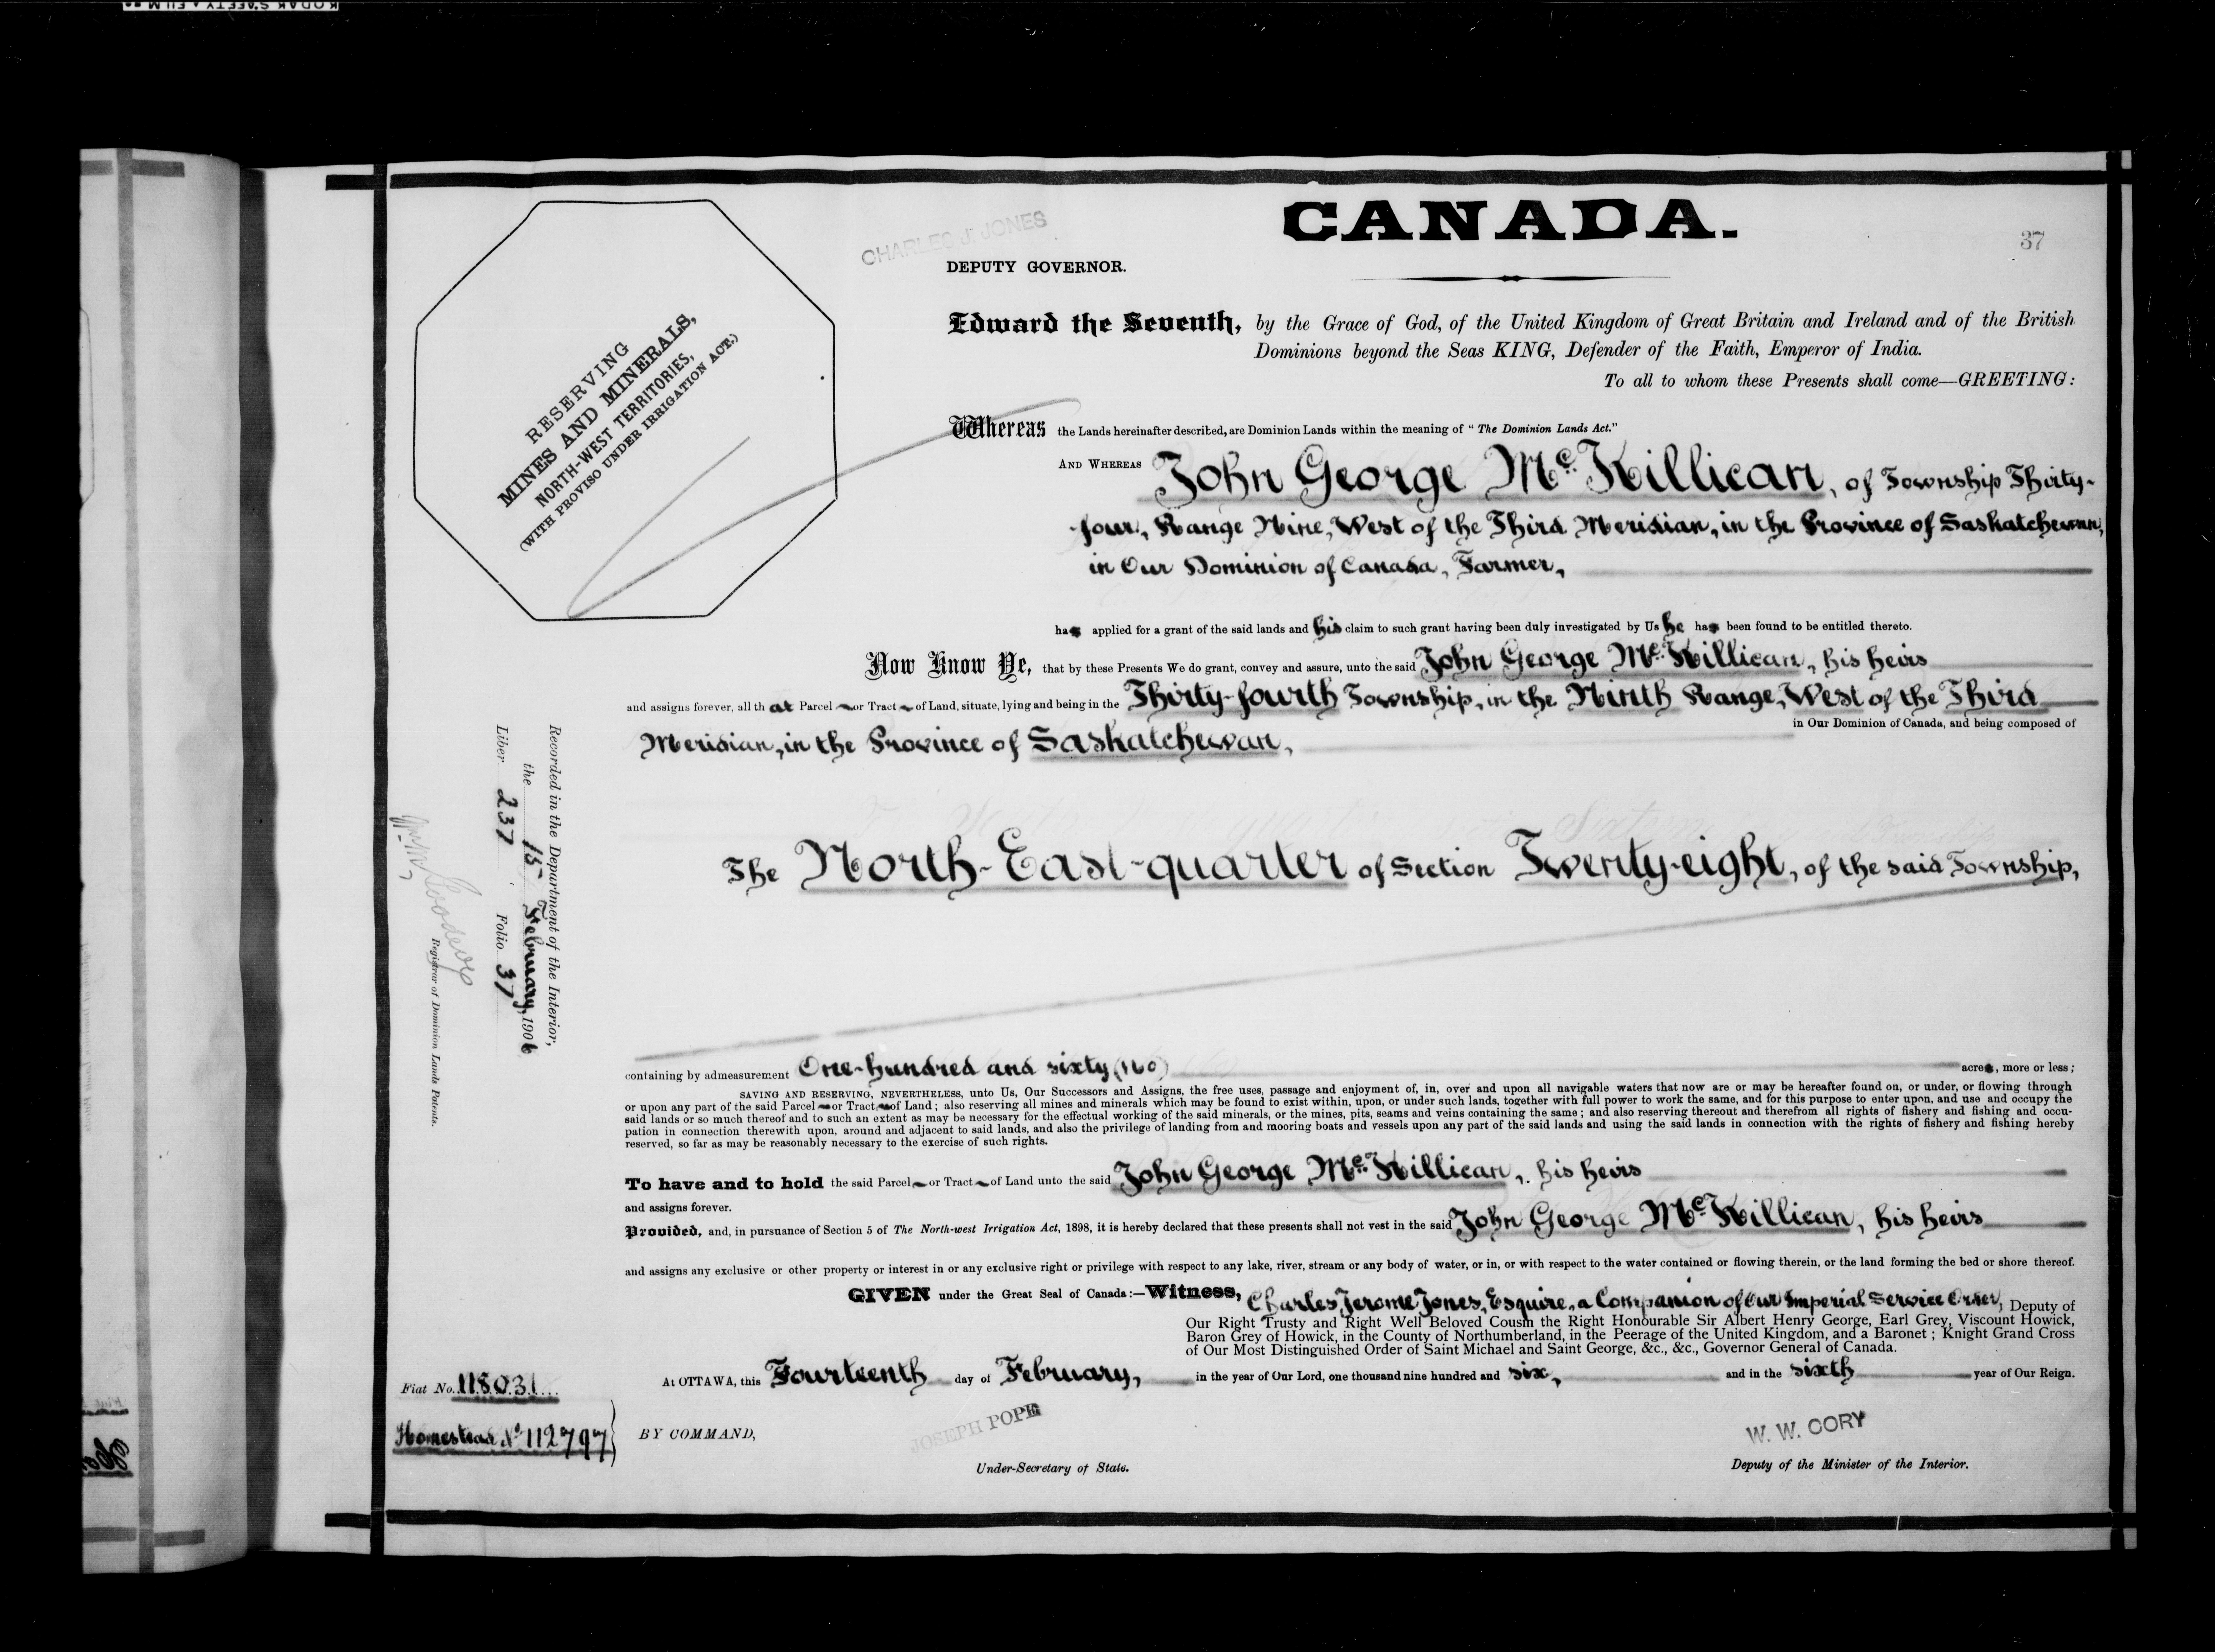 KODAK SAFETY FILM
CHARLES J. JONES
CANADA.
37
DEPUTY GOVERNOR.
RESERVING
MINES AND MINERALS,
NORTH-WEST TERRITORIES,
(WITH PROVISO UNDER IRRIGATION ACT.)
Edward the Seventh, by the Grace of God, of the United Kingdom of Great Britain and Ireland and of the British
Dominions beyond the Seas KING, Defender of the Faith, Emperor of India.
To all to whom these Presents shall come—GREETING:
Whereas the Lands hereinafter described, are Dominion Lands within the meaning of "The Dominion Lands Act."
AND WHEREAS John George McKillican, of Township Thirty-
four, Range Nine, West of the Third Meridian, in the Province of Saskatchewan,
in Our Dominion of Canada, Farmer,
has applied for a grant of the said lands and his claim to such grant having been duly investigated by Us he has been found to be entitled thereto.
Now Know Ye, that by these Presents We do grant, convey and assure, unto the said John George McKillican, his heirs
and assigns forever, all that Parcel or Tract of Land, situate, lying and being in the Thirty-fourth Township, in the Ninth Range, West of the Third
in Our Dominion of Canada, and being composed of
Meridian, in the Province of Saskatchewan,
The North-East-quarter of Section Twenty-eight, of the said Township,
Recorded in the Department of the Interior,
the 15th February, 1906
Liber 237 Folio 37
Registrar of Dominion Lands Patents.
containing by admeasurement One-hundred and sixty (160) acres, more or less;
SAVING AND RESERVING, NEVERTHELESS, unto Us, Our Successors and Assigns, the free uses, passage and enjoyment of, in, over and upon all navigable waters that now are or may be hereafter found on, or under, or flowing through
or upon any part of the said Parcel or Tract of Land; also reserving all mines and minerals which may be found to exist within, upon, or under such lands, together with full power to work the same, and for this purpose to enter upon, and use and occupy the
said lands or so much thereof and to such an extent as may be necessary for the effectual working of the said minerals, or the mines, pits, seams and veins containing the same; and also reserving thereout and therefrom all rights of fishery and fishing and occu-
pation in connection therewith upon, around and adjacent to said lands, and also the privilege of landing from and mooring boats and vessels upon any part of the said lands and using the said lands in connection with the rights of fishery and fishing hereby
reserved, so far as may be reasonably necessary to the exercise of such rights.
To have and to hold the said Parcel or Tract of Land unto the said John George McKillican, his heirs
and assigns forever.
Provided, and, in pursuance of Section 5 of The North-west Irrigation Act, 1898, it is hereby declared that these presents shall not vest in the said John George McKillican, his heirs
and assigns any exclusive or other property or interest in or any exclusive right or privilege with respect to any lake, river, stream or any body of water, or in, or with respect to the water contained or flowing therein, or the land forming the bed or shore thereof.
GIVEN under the Great Seal of Canada:—Witness, Charles Jerome Jones, Esquire, a Companion of Our Imperial Service Order, Deputy of
Our Right Trusty and Right Well Beloved Cousin the Right Honourable Sir Albert Henry George, Earl Grey, Viscount Howick,
Baron Grey of Howick, in the County of Northumberland, in the Peerage of the United Kingdom, and a Baronet; Knight Grand Cross
of Our Most Distinguished Order of Saint Michael and Saint George, &c., &c., Governor General of Canada.
At OTTAWA, this Fourteenth day of February, in the year of Our Lord, one thousand nine hundred and six, and in the sixth year of Our Reign.
Fiat No. 118031
Homestead No 112797
BY COMMAND,
JOSEPH POPE
Under-Secretary of State.
W. W. CORY
Deputy of the Minister of the Interior.